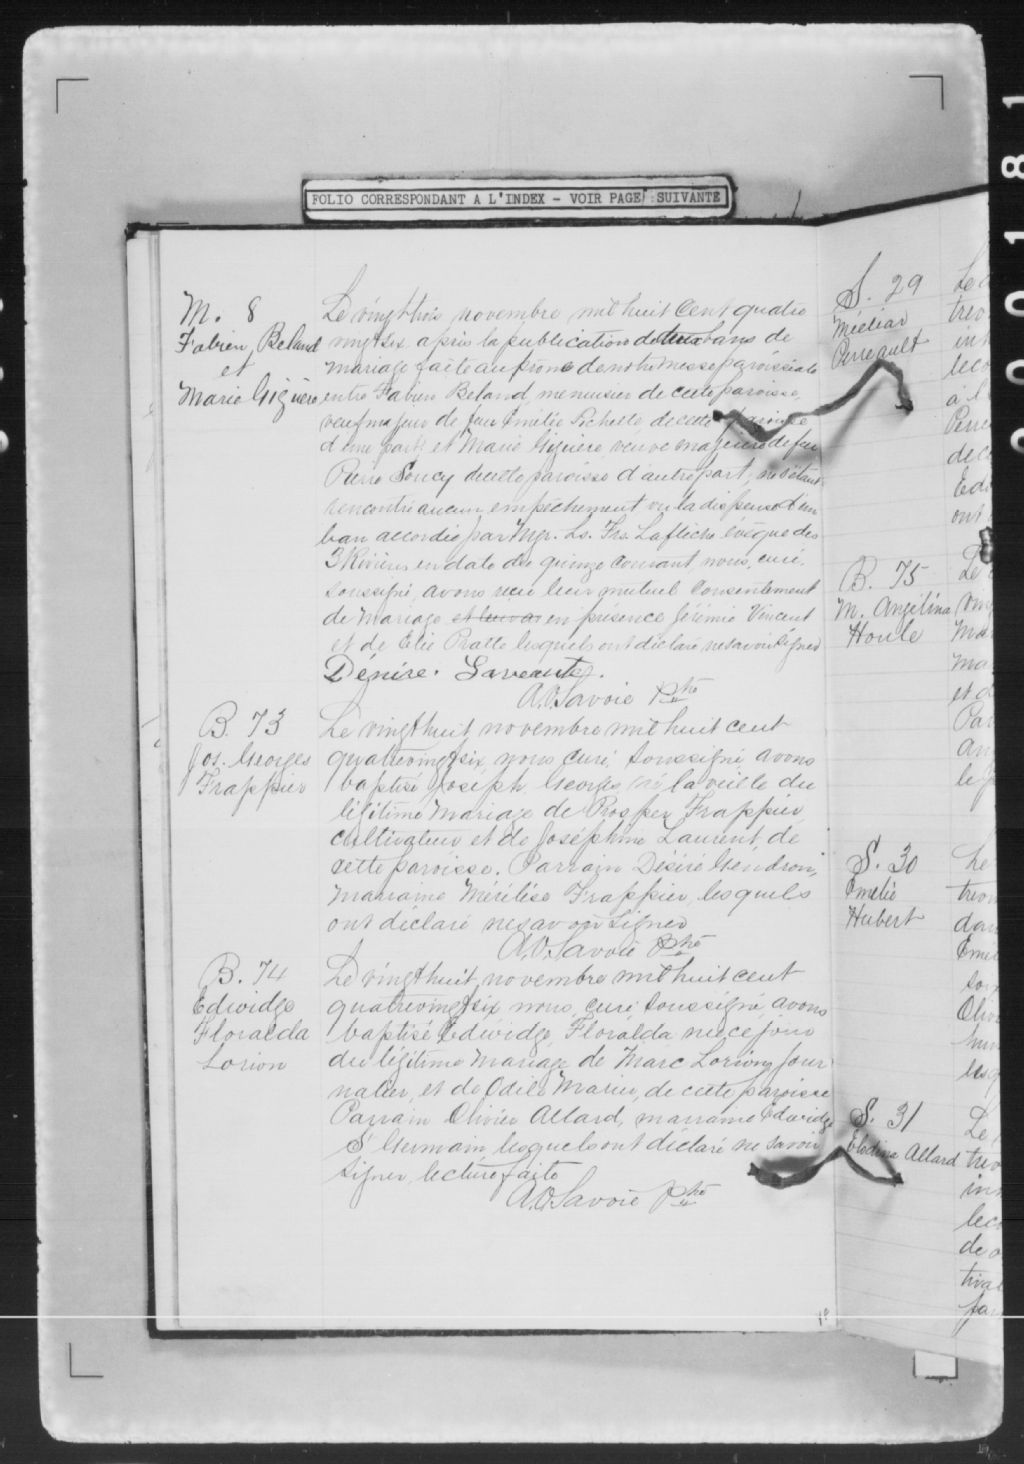 FOLIO CORRESPONDANT A L'INDEX - VOIR PAGE SUIVANTE
M. 8
Fabien Beland
et
Marie Giguère
Le vingt trois novembre mil huit cent quatre
vingt six après la publication de deux bans de
mariage faite au prone de notre messe paroissiale
entre Fabien Beland, menuisier de cette paroisse,
veuf majeur de feue Emilie Pichette de cette paroisse
d'une part, et Marie Giguère veuve majeure de feu
Pierre Soucy de cette paroisse d'autre part; ne s'étant
rencontré aucun empêchement vu la dispense d'un
ban accordée par Mgr. Ls. Frs. Laflèche évêque des
3 Rivières en date du quinze courant nous, curé,
soussigné, avons reçu leur mutuel consentement
de mariage et leur as en présence Jérémie Vincent
et de Elie Pratte lesquels ont déclaré ne savoir signer
Dénise.
A.O. Savoie Ptre
B. 73
Jos. Georges
Frappier
Le vingt huit, novembre mil huit cent
quatre vingt six, nous, curé, soussigné, avons
baptisé Joseph, Georges, né la veille du
légitime mariage de Prosper Frappier,
cultivateur et de Joséphine Laurent, de
cette paroisse. Parrain Désiré Gendron,
marraine Mérilise Frappier, lesquels
ont déclaré ne savoir signer
A.O. Savoie Ptre
B. 74
Edwidge
Floralda
Lorion
Le vingt huit, novembre mil huit cent
quatre vingt six, nous, curé soussigné, avons
baptisé Edwidge, Floralda née ce jour
du légitime mariage de Marc Lorion, jour
nalier, et de Odile Marier, de cette paroisse
Parrain Olivier Allard, marraine Edwidge
St Germain, lesquels ont déclaré ne savoir
signer, lecture faite
A.O. Savoie Ptre
S. 29
Méeliar
Perreault
B. 75
M. Angélina
Houle
S. 30
Emelie
Hubert
S. 31
Elodina Allard